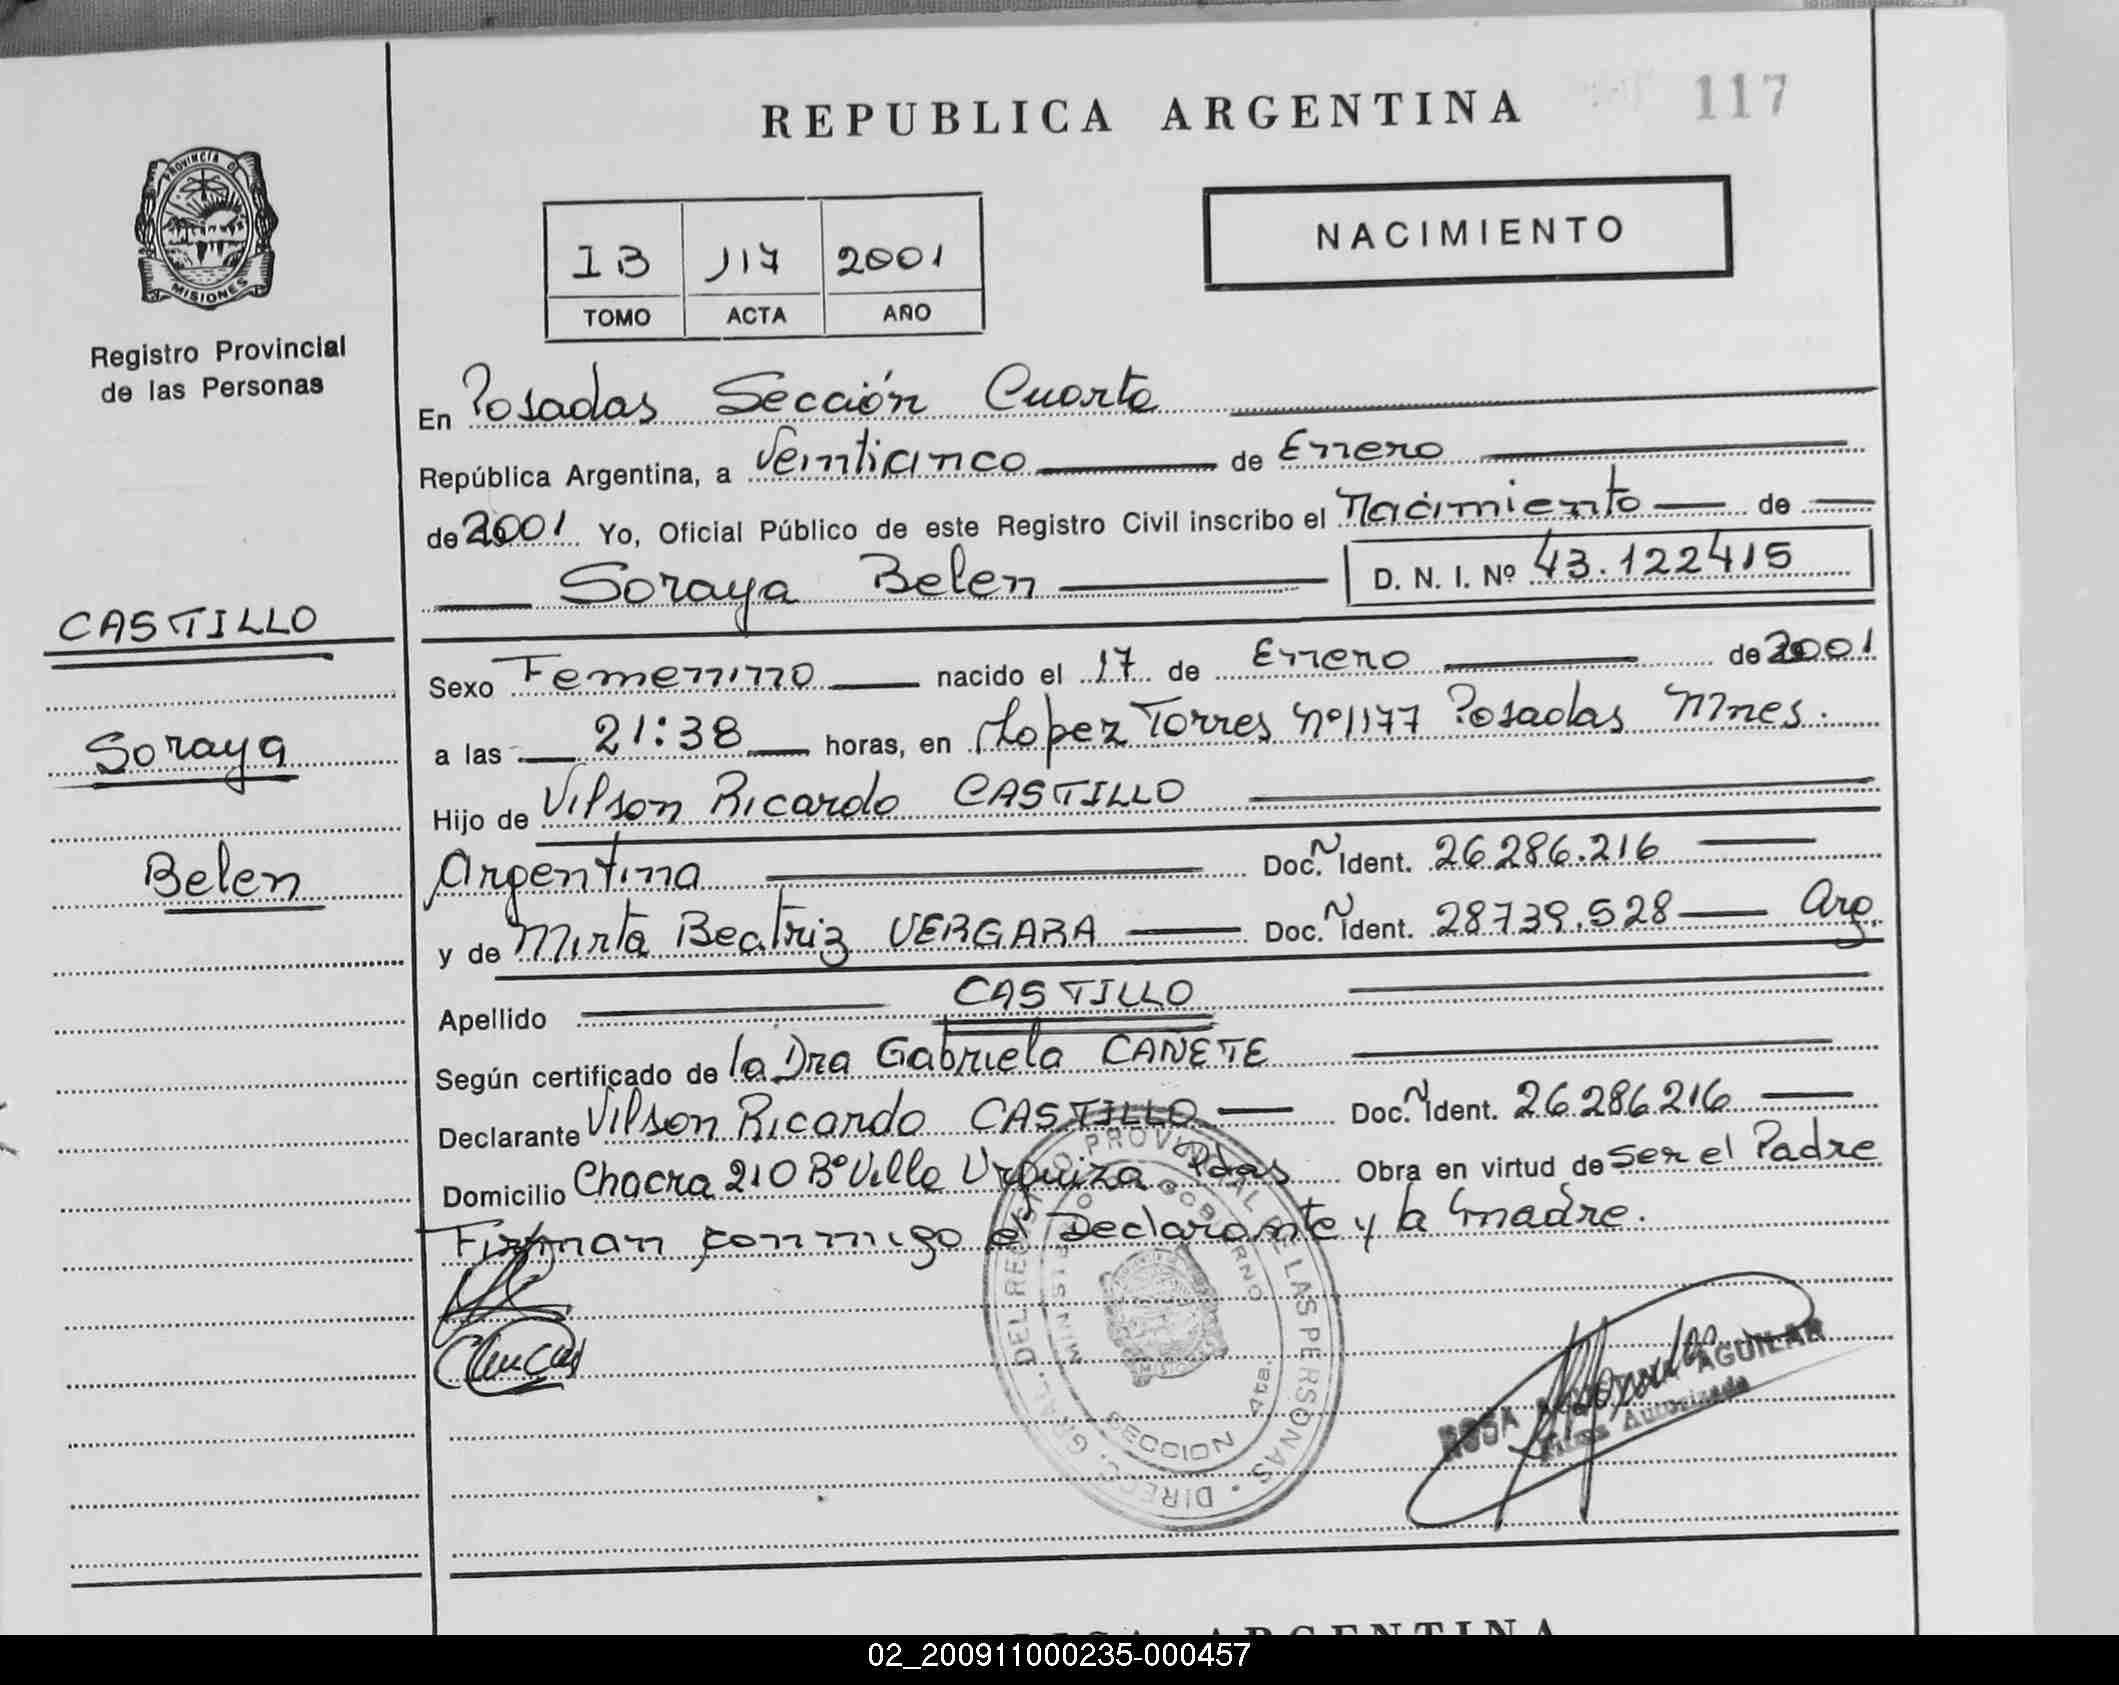 REPUBLICA ARGENTINA
117
PROVINCIA D
MISIONES
Registro Provincial
de las Personas
1B 117 2001
TOMO ACTA AÑO
NACIMIENTO
En Posadas Sección Cuarta
República Argentina, a Veinticinco de Enero
de 2001 Yo, Oficial Público de este Registro Civil inscribo el Nacimiento de
Soraya Belen D. N. I. Nº 43.122415
CASTILLO
Soraya
Belen
Sexo Femenino nacido el 17 de Enero de 2001
a las 21:38 horas, en Lopez Torres Nº1177 Posadas Mnes.
Hijo de Vilson Ricardo CASTILLO
Argentina Doc. Ident. 26.286.216
y de Mirta Beatriz VERGARA Doc. Ident. 28739.528 Arg.
Apellido CASTILLO
Según certificado de la Dra Gabriela CAÑETE
Declarante Vilson Ricardo CASTILLO Doc. Ident. 26.286.216
Domicilio Chacra 210 Bº Villa Urquiza Pdas Obra en virtud de Ser el Padre
Firman conmigo el Declarante y la madre.
DIREC. GRAL. DEL REGISTRO PROVINCIAL DE LAS PERSONAS
MINISTERIO GOBIERNO
SECCION 4ta.
ROSA AGUILAR
Firma Autorizada
ARGENTINA
02_200911000235-000457